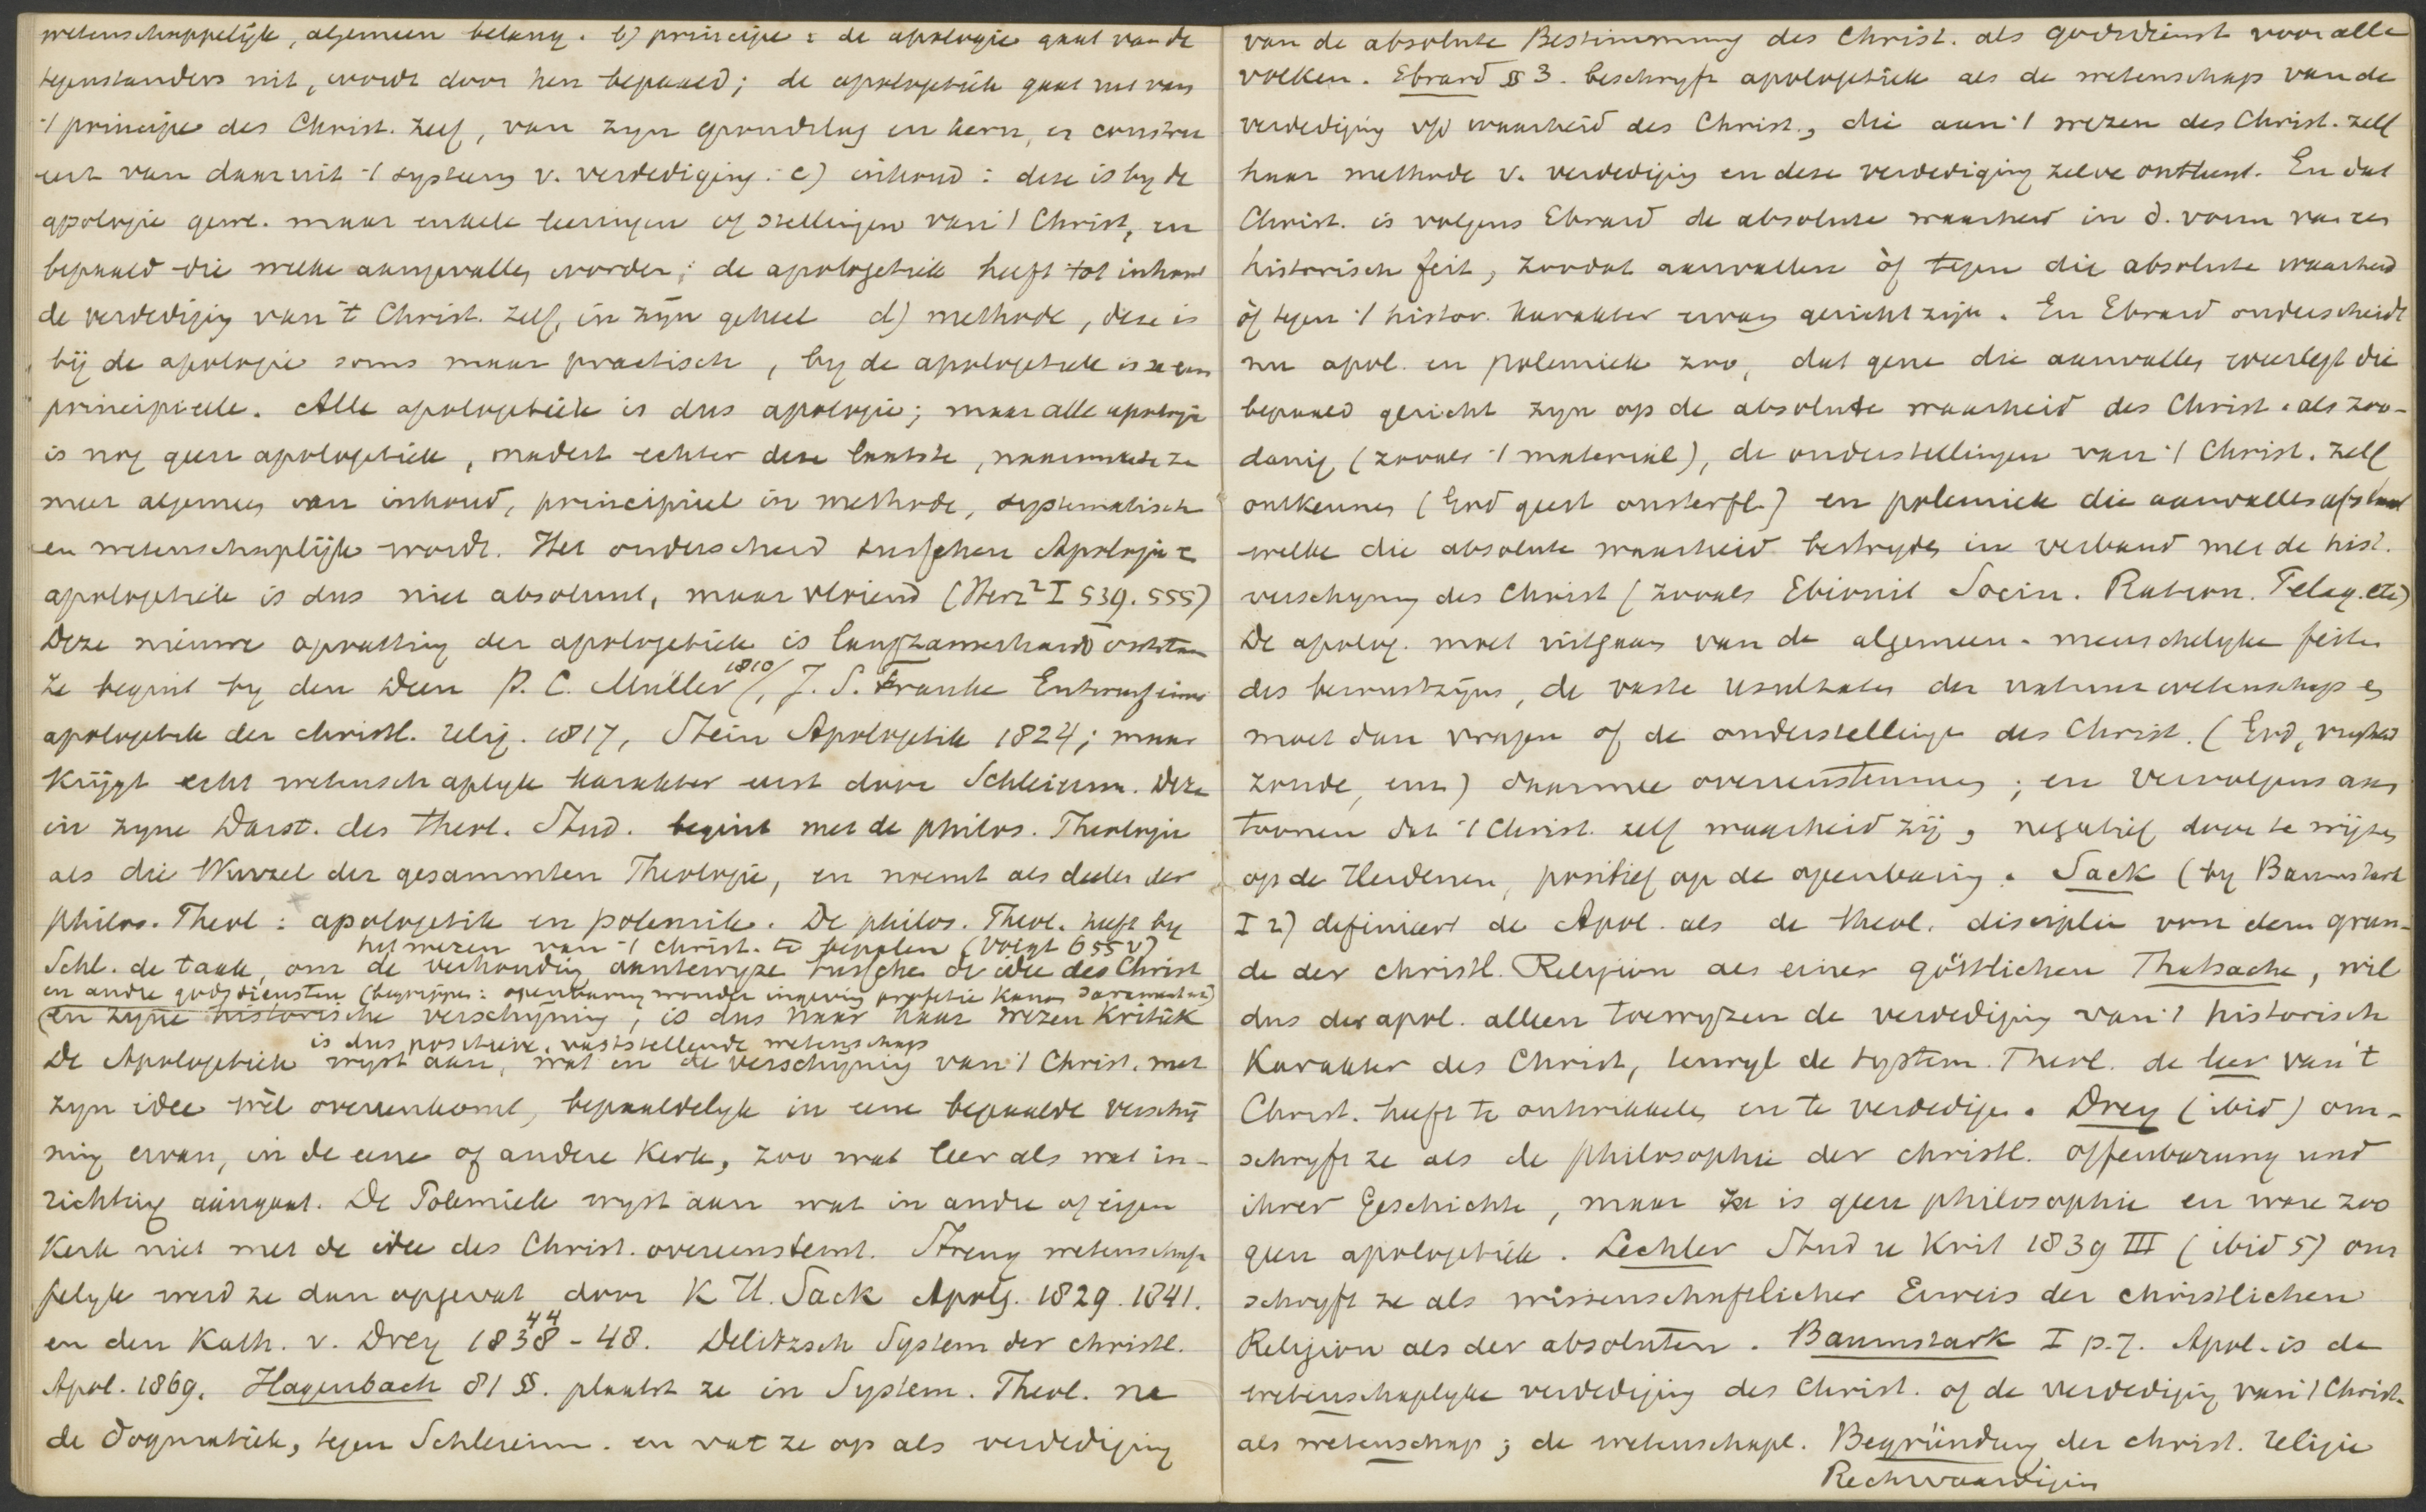 wetenschappelijk, algemeen belang. b) principe: de apologie gaat van de
tegenstanders uit, wordt door hen bepaald; de apologetiek gaat uit van
't principe des Christ. zelf, van zyn grondslag en kern, en construe
eert van daaruit 't systeem v. verdediging. c) inhoud: deze is by de
apologie gew. maar enkele leeringen of stellingen van 't Christ, en
bepaald die welke aangevallen worden; de apologetiek heeft tot inhoud
de verdediging van 't Christ. zelf, in zyn geheel d) methode, deze is
bij de apologie soms maar practisch, by de apologetiek is ze een
principieele. Alle apologetiek is dus apologie; maar alle apologie
is nog geen apologetiek, nadert echter deze laatste, naarmate ze
meer algemeen van inhoud, principieel in methode, systematisch
en wetenschaplijk wordt. Het onderscheid tusschen Apologie &
apologetiek is dus niet absoluut, maar vloeiend (Herz² I 539. 555)
Deze nieuwe opvatting der apologetiek is langzamerhand ontstaan
ze begint by den Deen P. E. Müller 1810/, J. S. Franke Entwurf einer
apologetik der christl. relig. 1817, Stein Apologetik 1824; maar
krijgt echt wetenschaplyk karakter eerst door Schleierm. Deze
in zyne Darst. des theol. Stud. begint met de philos. Theologie
als die Wurzel der gesammten Theologie, en noemt als deelen der
philos. Theol: apologetik en polemik. De philos. Theol. heeft by
het wezen van 't christ. te bepalen (Voigt 655 v)
Schl. de taak, om de verhouding aantewyze tusschen de idee des Christ
en andre godsdiensten (begrippen: openbaring wonder ingeving profetie Kanon Sacramenten)
(en zyne historische verschyning; is dus naar haar wezen Kritiek
is dus positieve, vaststellende wetenschap
De Apologetiek wyst aan, wat in de verschijning van 't Christ. met
zyn idee wèl overeenkomt, bepaaldelyk in eene bepaalde verschij
ning ervan, in de eene of andere Kerk, zoo wat leer als wat in-
richting aangaat. De Polemiek wyst aan wat in andre of eigen
Kerk niet met de idee des Christ. overeenstemt. Streng wetenschap
pelyk werd ze dan opgevat door K H. Sack Apolg. 1829. 1841.
44
en den Kath. v. Drey 1838 - 48. Delitzsch System der christl.
Apol. 1869. Hagenbach 81 §§. plaatst ze in System. Theol. na
de dogmatiek, tegen Schleierm. en vat ze op als verdediging
van de absolute Bestimmung des Christ. als godsdienst voor alle
volken. Ebrard § 3. beschryft apologetiek als de wetenschap van de
verdediging v/d waarheid des Christ., die aan 't wezen des Christ. zelf
haar methode v. verdediging en deze verdediging zelve ontleent. En dat
Christ. is volgens Ebrard de absolute waarheid in d. vorm van een
historisch feit, zoodat aanvallen òf tegen die absolute waarheid
òf tegen 't histor. karakter ervan gericht zijn. En Ebrard onderscheidt
nu apol. en polemiek zoo, dat gene die aanvallen weerlegt die
bepaald gericht zyn op de absolute waarheid des Christ. als zoo-
danig (zooals 't material), de onderstellingen van 't Christ. zelf
ontkennen (God geest onsterfl.) en polemiek die aanvallen afslaat
welke die absolute waarheid bestryden in verband met de hist.
verschyning des Christ (zooals Ebionit Socin. Ration. Pelag. etc)
De apolog. moet uitgaan van de algemeen-menschelyke feiten
des bewustzijns, de vaste resultaten der natuurwetenschap en
moet dan vragen of de onderstellingen des Christ. (God, vryheid
zonde, enz) daarmee overeenstemmen; en vervolgens aan
toonen dat 't Christ. zelf waarheid zij, negatief door te wijzen
op de Heidenen, positief op de openbaring. Sack (by Baumstark
I 2) definieert de Apol. als de theol. disciplin von dem grun-
de der christl. Religion als einer göttlichen Thatsache, wil
dus der apol. alleen toewyzen de verdediging van 't historisch
Karakter des Christ, terwyl de system. Theol. de leer van 't
Christ. heeft te ontwikkelen en te verdedigen. Drey (ibid) om-
schryft ze als de philosophie der christl. offenbarung und
ihrer Geschichte, maar ze is geen philosophie en ware zoo
geen apologetiek. Lechler Stud u Krit 1839 III (ibid 5) om
schryft ze als wissenschaftlicher Erweis der christlichen
Religion als der absoluten. Baumstark I p. 7. Apol. is de
wetenschaplyke verdediging des Christ. of de verdediging van 't Christ.
als wetenschap; de wetenschapl. Begründung der christ. religie
Rechtvaardigin